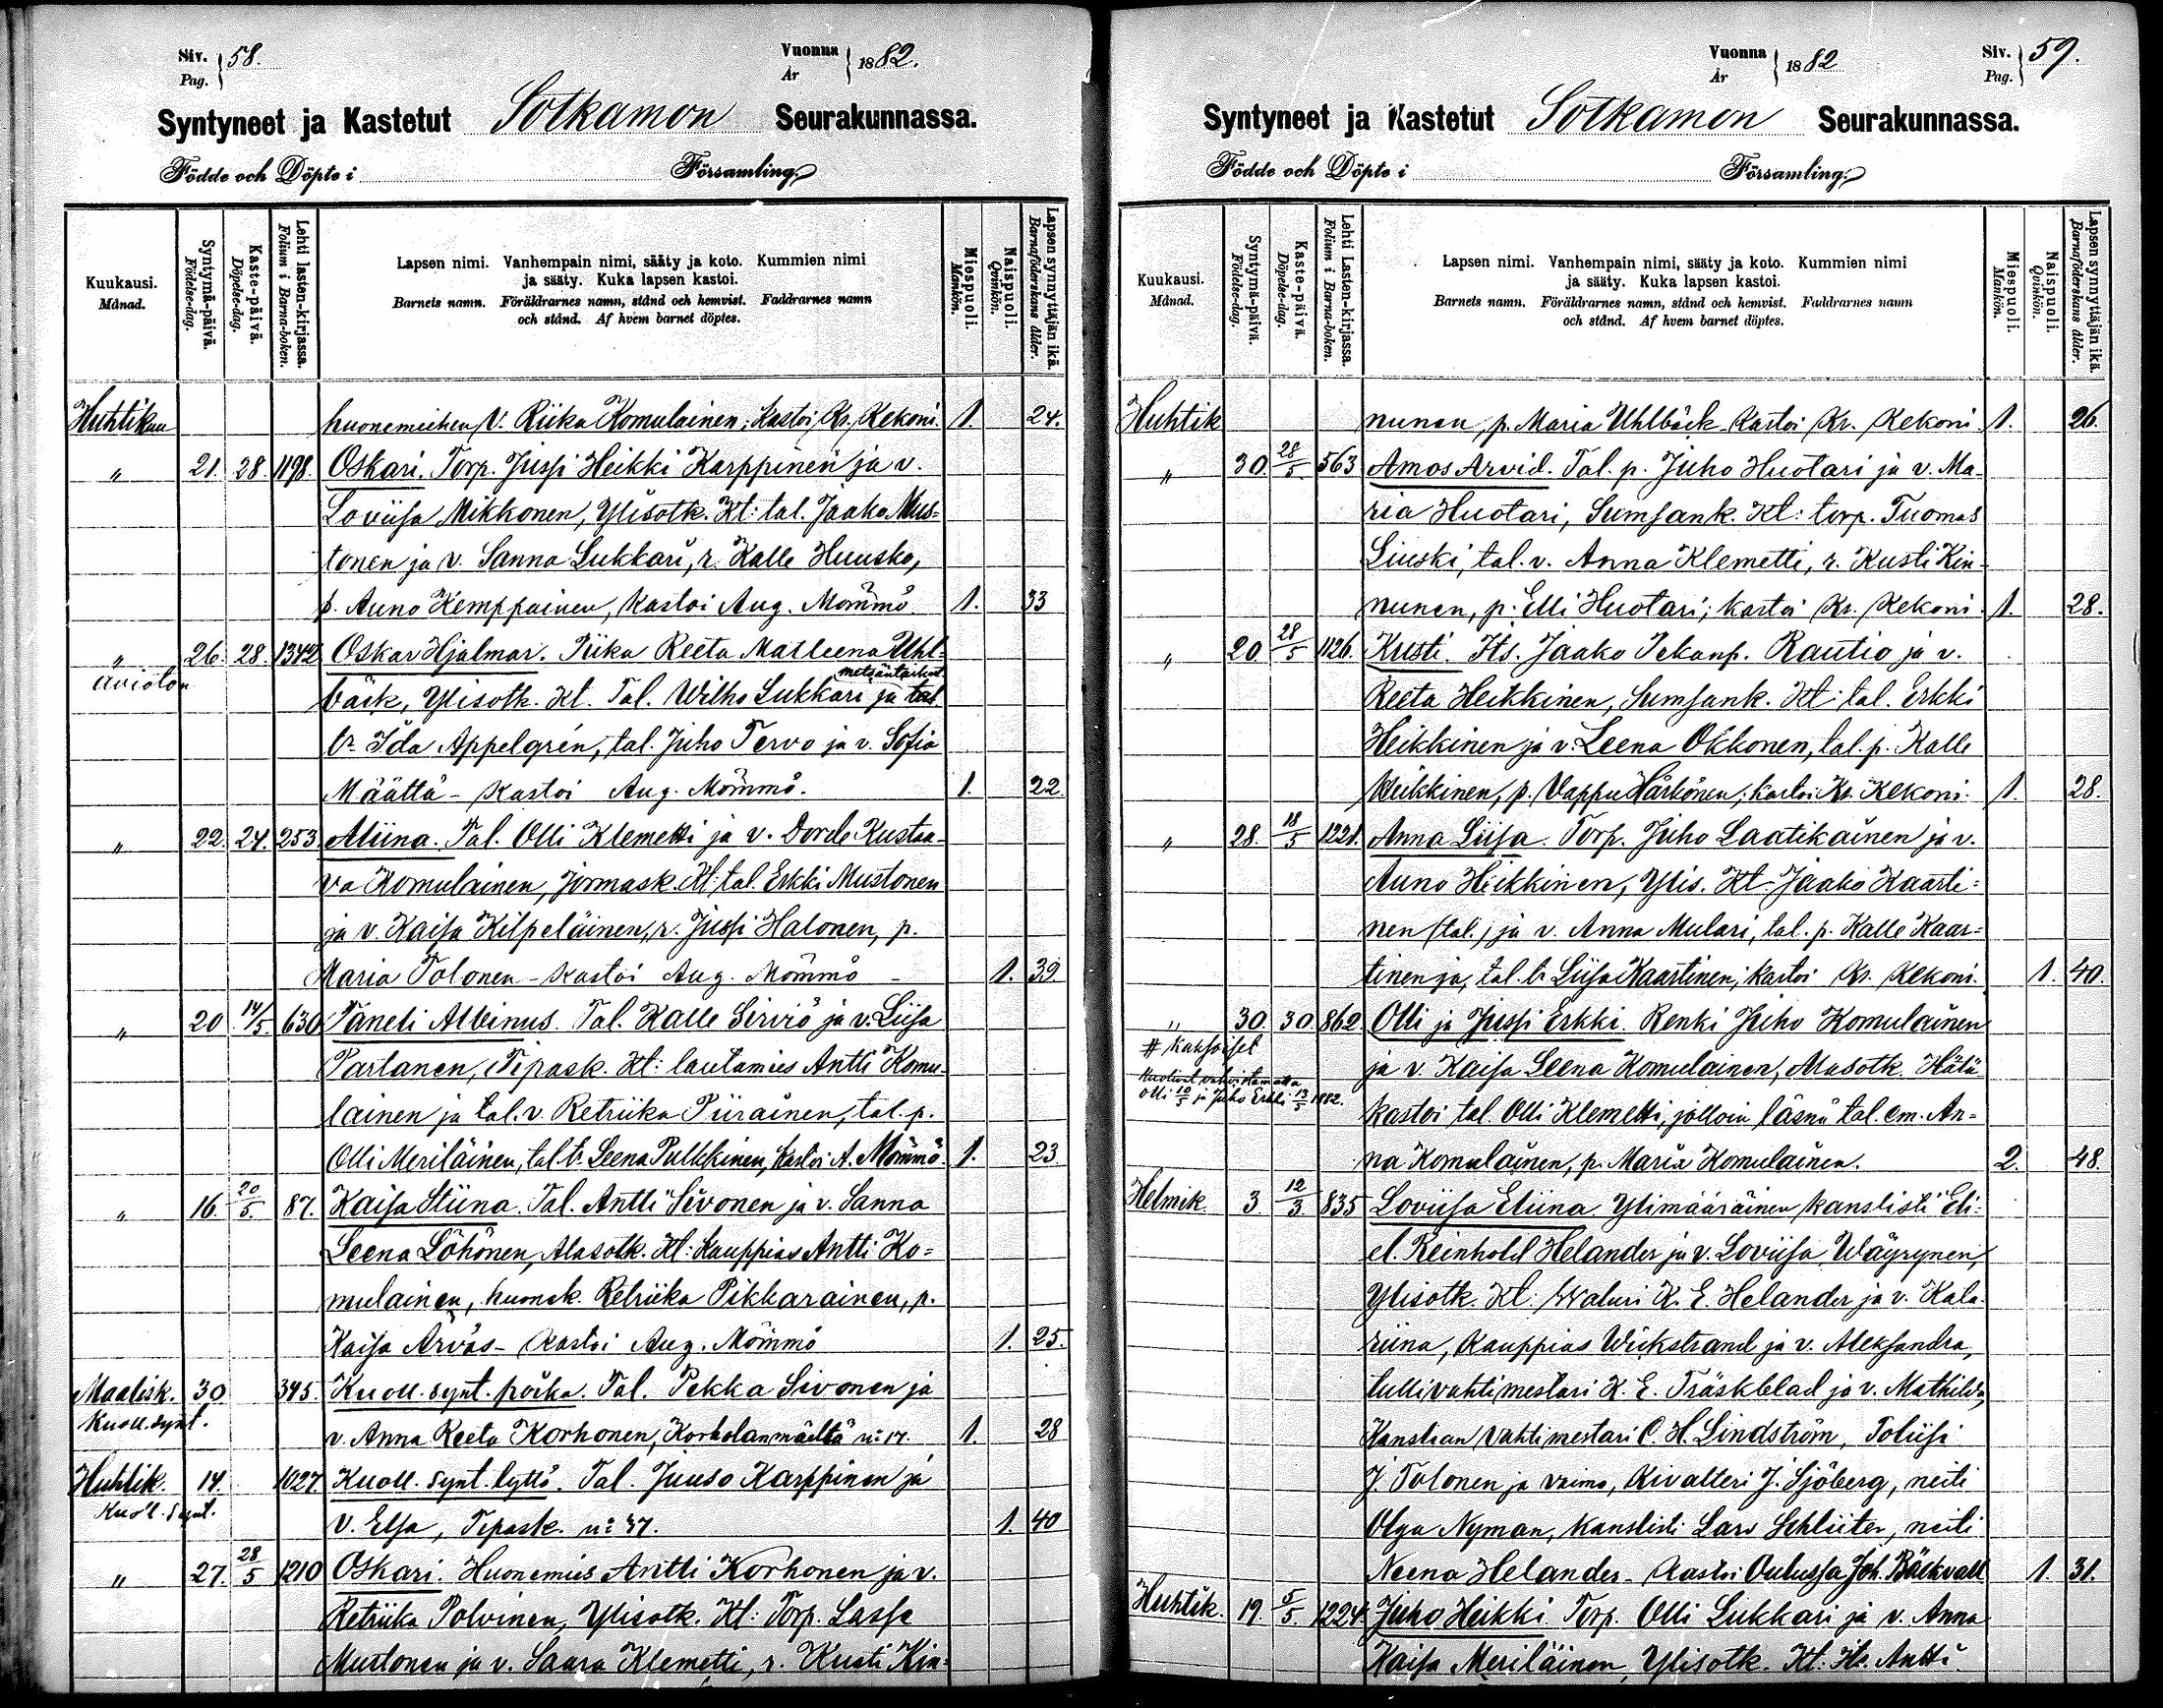 Siv. Pag. 58.
Vuonna År 1882.
Syntyneet ja Kastetut Sotkamon Seurakunnassa.
Födde och Döpte i Församling.
Kuukausi. Månad.
Syntymä-päivä. Födelse-dag.
Kaste-päivä. Döpelse-dag.
Lehti lasten-kirjassa. Folium i Barna-boken.
Lapsen nimi. Vanhempain nimi, sääty ja koto. Kummien nimi
ja sääty. Kuka lapsen kastoi.
Barnets namn. Föräldrarnes namn, stånd och hemvist. Faddrarnes namn
och stånd. Af hvem barnet döptes.
Miespuoli. Mankön.
Naispuoli. Qvinkön.
Lapsen synnyttäjän ikä. Barnaföderskans ålder.
Huhtikuu huonemiehen v. Riika Komulainen; Kastoi Kr. Kekoni. 1. 24.
" 21. 28. 1198. Oskari. Torp. Jussi Heikki Karppinen ja v.
Loviisa Mikkonen, Ylisotk. Kt: tal. Jaako Mus=
tonen ja v. Sanna Lukkari, r. Kalle Huusko,
p. Auno Kemppainen, Kastoi Aug. Mömmö. 1. 33
" 26. 28. 1342 Oskar Hjalmar. Piika Reeta Matleena Uhl=
Avioton bäck, Ylisotk. Kt. Tal. Wilho Lukkari ja tal
tr Ida Appelgrén, tal. Juho Tervo ja v. Sofia
Määttä - Kastoi Aug. Mömmö. 1. 22.
" 22. 24. 253 Aliina. Tal. Olli Klemetti ja v. Dorde Kustaa-
va Komulainen, Jormask. Kt: tal. Erkki Mustonen
ja v. Kaisa Kilpeläinen, r. Jussi Halonen, p.
Maria Tolonen - Kastoi Aug. Mömmö - 1. 39.
" 20 14/5. 630 Taneli Albinus. Tal. Kalle Sirviö ja v. Liisa
Partanen, Tipask. Kt: lautamies Antti Komu-
lainen ja tal. v. Retriika Piirainen, tal. p.
Olli Meriläinen, tal. tr. Leena Pulkkinen, Kastoi A. Mömmö. 1. 23
" 16. 20/5. 87. Kaisa Stiina. Tal. Antti Sivonen ja v. Sanna
Leena Löhönen, Alasotk. Kt: Kauppias Antti Ko=
mulainen, huonek. Retriika Pikkarainen, p.
Kaisa Arvas - Kastoi Aug. Mömmö 1. 25.
Maalisk. 30 345. Kuoll. synt. poika. Tal. Pekka Sivonen ja
Kuoll. synt. v. Anna Reeta Korhonen, Korholanmäeltä n:o 17. 1. 28
Huhtik. 14. 1027 Kuoll. synt. tyttö. Tal. Juuso Karppinen ja
Kuoll. synt. v. Elsa, Tipask. n:o 37. 1. 40
" 27. 28/5 1210 Oskari. Huonemies Antti Korhonen ja v.
Retriika Polvinen, Ylisotk. Kt: Torp. Lasse
Mustonen ja v. Saara Klemetti, r. Kusti Kin=
Vuonna År 1882
Siv. Pag. 59.
Syntyneet ja Kastetut Sotkamon Seurakunnassa.
Födde och Döpte i Församling.
Kuukausi. Månad.
Syntymä-päivä. Födelse-dag.
Kaste-päivä. Döpelse-dag.
Lehti Lasten-kirjassa. Folium i Barna-boken.
Lapsen nimi. Vanhempain nimi, sääty ja koto. Kummien nimi
ja sääty. Kuka lapsen kastoi.
Barnets namn. Föräldrarnes namn, stånd och hemvist. Faddrarnes namn
och stånd. Af hvem barnet döptes.
Miespuoli. Mankön.
Naispuoli. Qvinkön.
Lapsen synnyttäjän ikä. Barnaföderskans ålder.
Huhtik nunen, p. Maria Uhlbäck - Kastoi Kr. Kekoni. 1. 26.
" 30. 28/5. 563 Amos Arvid. Tal. p. Juho Huotari ja v. Ma-
ria Huotari, Sumsank. Kt: torp. Tuomas
Liuski, tal. v. Anna Klemetti, r. Kusti Kin-
nunen, p. Elli Huotari; kastoi Kr. Kekoni. 1. 28.
" 20. 28/5 1126. Kusti. Its. Jaako Pekanp. Rautio ja v.
Reeta Heikkinen, Sumsank. Kt: tal. Erkki
Heikkinen ja v. Leena Okkonen, tal. p. Kalle
Heikkinen, p. Vappu Härkönen; kastoi Kr. Kekoni. 1. 28.
" 28. 18/5 1221. Anna Liisa. Torp. Juho Laatikainen ja v.
Auno Heikkinen, Ylis. Kt. Jaako Kaarti=
nen (tal.) ja v. Anna Mulari, tal. p. Kalle Kaar=
tinen ja tal. tr Liisa Kaartinen; kastoi Kr. Kekoni. 1. 40.
" 30. 30. 862. Olli ja Jussi Erkki. Renki Juho Komulainen
# Kaksoiset ja v. Kaisa Leena Komulainen, Alasotk. Hätä
Kuolivat vahvistamatta
Olli 10/5 ja Juho Erkki 13/5 1882. kastoi tal. Olli Klemetti, jolloin läsnä tal. em. An=
na Komulainen, p. Maria Komulainen. 2. 48.
Helmik. 3. 12/3. 835 Loviisa Eliina Ylimääräinen kanslisti Eli=
el. Reinhold Helander ja v. Loviisa Wäyrynen,
Ylisotk. Kt. Waluri K. E. Helander ja v. Kata-
riina, Kauppias Wickstrand ja v. Aleksandra,
tullivahtimestari K. E. Träskblad ja v. Mathilda,
Kanslian Vahtimestari C. H. Lindström, Poliisi
J. Tolonen ja vaimo, Kivalteri J. Sjöberg, neiti
Olga Nyman, kanslisti Lars Schlüter, neiti
Neena Helander - Kastoi Oulussa Joh. Bäckvall 1. 31.
Huhtik. 19. 5/5. 1224. Juho Heikki Torp. Olli Lukkari ja v. Anna
Kaisa Meriläinen, Ylisotk. Kt: Its. Antti